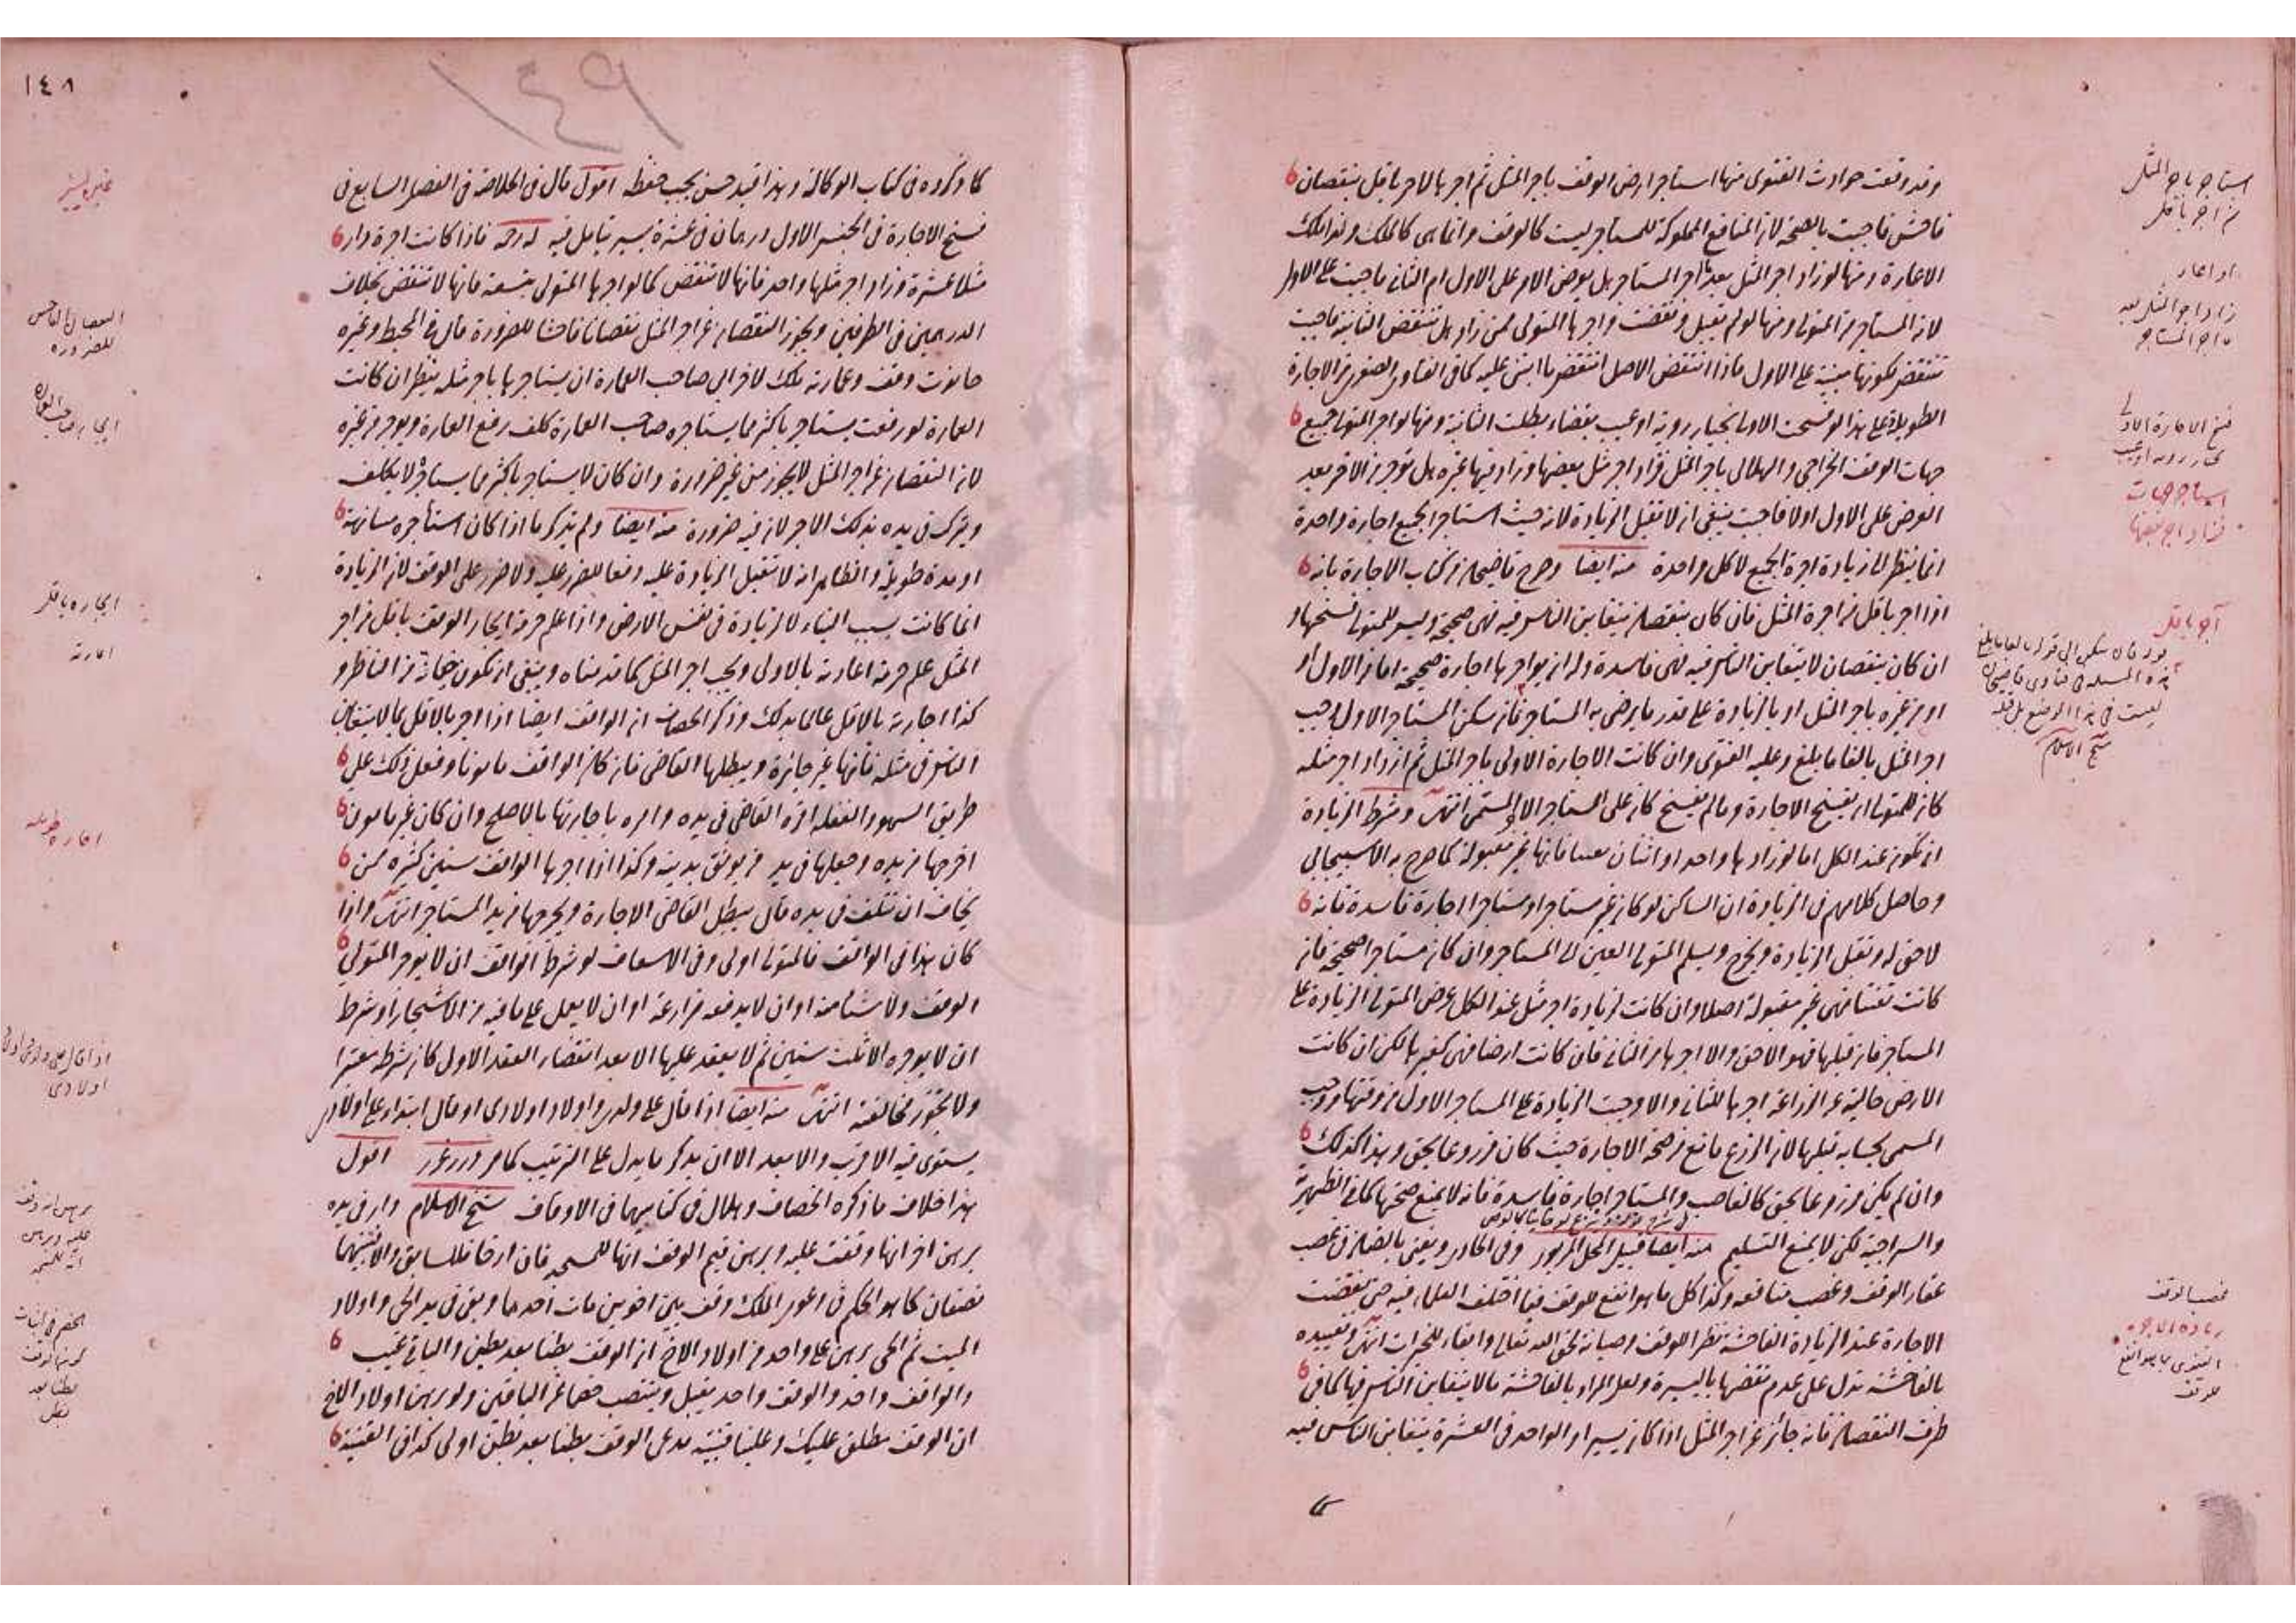 وقد وقعت حوادث الفتوى منها استاجر ارض الوقف باجر المثل ثم اجرها لاخر باقل بنقصان
فاحش فاجبت بالصحة لان المنافع المملوكة للمستاجر ليست كالوقف وانما هي كالملك ولذا ملك
الاعارة ومنها لو زاد اجر المثل بعد ما اجر المستاجر هل يعرض الامر على الاول ام الثاني فاجبت على الاول
لانه المستاجر من المتولي ومنها لو لم يقبل ونقضت واجرها المتولي ممن زاد هل تنتقض الثانية فاجبت
تنتقض لكونها مبنية على الاول فاذا انتقض الاصل انتقض ما ابتني عليه كما في الفتاوى الصغرى من الاجارة
الطويلة على هذا لو فسخت الاولى بخيار روية او عيب بقضاء بطلت الثانية ومنها لو اجر المتولي جميع
جهات الوقف الخراجي والهلالي باجر المثل فزاد اجر مثل بعضها وزاد فيها غيره هل توجر من الاخر بعد
العرض على الاول اولا فاجبت ينبغي ان لا تقبل الزيادة لانه حيث استاجر الجميع اجارة واحدة
انما ينظر الى زيادة اجرة الجميع لا كل واحدة منه ايضا وصرح قاضيخان في كتاب الاجارة بانه
اذا اجر باقل من اجرة المثل فان كان بنقصان يتغابن الناس فيه فهي صحيحة وليس للمتولي فسخها و
ان كان بنقصان لا يتغابن الناس فيه فهي فاسدة وله ان يواجرها اجارة صحيحة اما من الاول او
او من غيره باجر المثل او بالزيادة على قدر ما يرضى به المستاجر فان سكن المستاجر الاول وجب
اجر المثل بالغا ما بلغ وعليه الفتوى وان كانت الاجارة الاولى باجر المثل ثم ازداد اجر مثله
كان للمتولي ان يفسخ الاجارة وما لم يفسخ كان على المستاجر الاجر المسمى انتهى وشرط الزيادة
ان تكون عند الكل اما لو زادها واحد او اثنان تعنتا فانها غير مقبولة كما صرح به الاسبيجابي
وحاصل كلامهم في الزيادة ان الساكن لو كان غير مستاجر او مستاجرا اجارة فاسدة فانه
لا حق له وتقبل الزيادة ويخرج ويسلم المتولي العين الى المستاجر وان كان مستاجرا صحيحة فان
كانت تعنتا فهي غير مقبولة اصلا وان كانت لزيادة اجر مثل عند الكل عرض المتولي الزيادة على
المستاجر فان قبلها فهو الاحق والا اجرها من الثاني فان كانت ارضا فهي كغيرها لكن ان كانت
الارض خالية عن الزراعة اجرها للثاني والا وجبت الزيادة على المستاجر الاول من وقتها ووجب
المسمى بحسابه قبلها لان الزرع مانع من صحة الاجارة حيث كان مزروعا بحق وهذا كذلك
وان لم يكن مزروعا بحق كالغاصب والمستاجر اجارة فاسدة فانه لا يمنع صحتها كما في الظهيرية
والسراجية لكن لا يمنع التسليم منه ايضا قبيل المحل المزبور وفي الحاوي ويفتى بالضمان في غصب
عقار الوقف وغصب منافعه وكذا كل ما هو انفع للوقف فيما اختلف العلماء فيه حتى نقضت
الاجارة عند الزيادة الفاحشة نظرا للوقف وصيانة لحق الله تعالى وابقاء للخيرات انتهى وتقييده
بالفاحشة يدل على عدم نقضها باليسيرة ولعل المراد بالفاحشة ما لا يتغابن الناس فيها كما في
طرف النقصان فانه جائز عن اجر المثل اذا كان يسيرا والواحد في العشرة يتغابن الناس فيه
استاجر باجر المثل
ثم اجر باقل
او اعار
زاد اجر المثل بعد
ما اجر المستاجر
فسخ الاجارة الاولى
بخيار روية او عيب
استاجر جهات
فزاد اجر بعضها
آجر باقل
شيخ الاسلام
غصب الوقف
زيادة الاجرة
الفتوى بما هو انفع
للوقف
١٤٨
١٤٩
كما ذكروه في كتاب الوكالة وهذا قيد حسن يجب حفظه اقول قال في الخلاصة في الفصل السابع في
فسخ الاجارة في الجنس الاول درهمان في عشرة يسير تامل فيه له رحمه فاذا كانت اجرة دار
مثلا عشرة وزاد اجر مثلها واحد فانها لا تنقض كما لو اجرها المتولي بتسعة فانها لا تنقض بخلاف
الدرهمين في الطرفين ويجوز النقصان عن اجر المثل نقصانا فاحشا للضرورة قال في المحيط وغيره
حانوت وقف وعمارته ملك لاخر ابى صاحب العمارة ان يستاجرها باجر مثله ينظر ان كانت
العمارة لو رفعت يستاجر باكثر مما يستاجره صاحب العمارة كلف رفع العمارة ويوجر من غيره
لان النقصان عن اجر المثل لا يجوز من غير ضرورة وان كان لا يستاجر باكثر مما يستاجره لا يكلف
ويترك في يده بذلك الاجر لان فيه ضرورة منه ايضا ولم يذكر ما اذا كان استأجره مسانهة
او مدة طويلة والظاهر انه لا تقبل الزيادة عليه دفعا للضرر عليه ولا ضرر على الوقف لان الزيادة
انما كانت بسبب البناء لا لزيادة في نفس الارض واذا علم حرمة ايجار الوقف باقل من اجر
المثل علم حرمة اعارته بالاولى ويجب اجر المثل كما قدمناه وينبغي ان تكون خيانة من الناظر و
كذا اجارته بالاقل عالما بذلك وذكر الخصاف ان الواقف ايضا اذا اجر بالاقل بما لا يتغابن
الناس في مثله فانها غير جائزة ويبطلها القاضي فان كان الواقف مامونا وفعل ذلك على
طريق السهو والغفلة اقره القاضي في يده وامره باجارتها بالاصلح وان كان غير مامون
اخرجها من يده وجعلها في يد من يوثق بدينه وكذا اذا اجرها الواقف سنين كثيرة ممن
يخاف ان تتلف في يده قال يبطل القاضي الاجارة ويخرجها من يد المستاجر انتهى واذا
كان هذا في الواقف فالمتولي اولى وفي الاسعاف لو شرط الواقف ان لا يوجر المتولي
الوقف ولا شيئا منه او ان لا يدفعه مزارعة او ان لا يعمل على ما فيه من الاشجار او شرط
ان لا يوجره الا ثلث سنين ثم لا يعقد عليها الا بعد انقضاء العقد الاول كان شرطه معتبرا
ولا يجوز مخالفته انتهى منه ايضا اذا قال على ولدي واولاد اولادي او قال ابتداء على اولادي
يستوي فيه الاقرب والابعد الا ان يذكر ما يدل على الترتيب كما مر درر غرر اقول
هذا خلاف ما ذكره الخصاف وهلال في كتابيهما في الاوقاف شيخ الاسلام دار في يده
برهن اخر انها وقفت عليه وبرهن قيم الوقف انها للمسجد فان ارخا فللسابق والا فبينهما
نصفان كما هو الحكم في دعوى الملك وقف بين اخوين مات احدهما وبقي في يد الحي واولاد
الميت ثم الحي برهن على واحد من اولاد الاخ ان الوقف بطنا بعد بطن والباقي غيب
والواقف واحد والوقف واحد يقبل وينتصب خصما عن الباقين ولو برهن اولاد الاخ
ان الوقف مطلق عليك وعلينا فبينة مدعي الوقف بطنا بعد بطن اولى كذا في القنية
النقصان الفاحش
للضرورة
ايجاره باقل
اعارته
اجارة طويلة
برهن انه وقف
عليه وبرهن
انه للمسجد
بطنا بعد
بطن